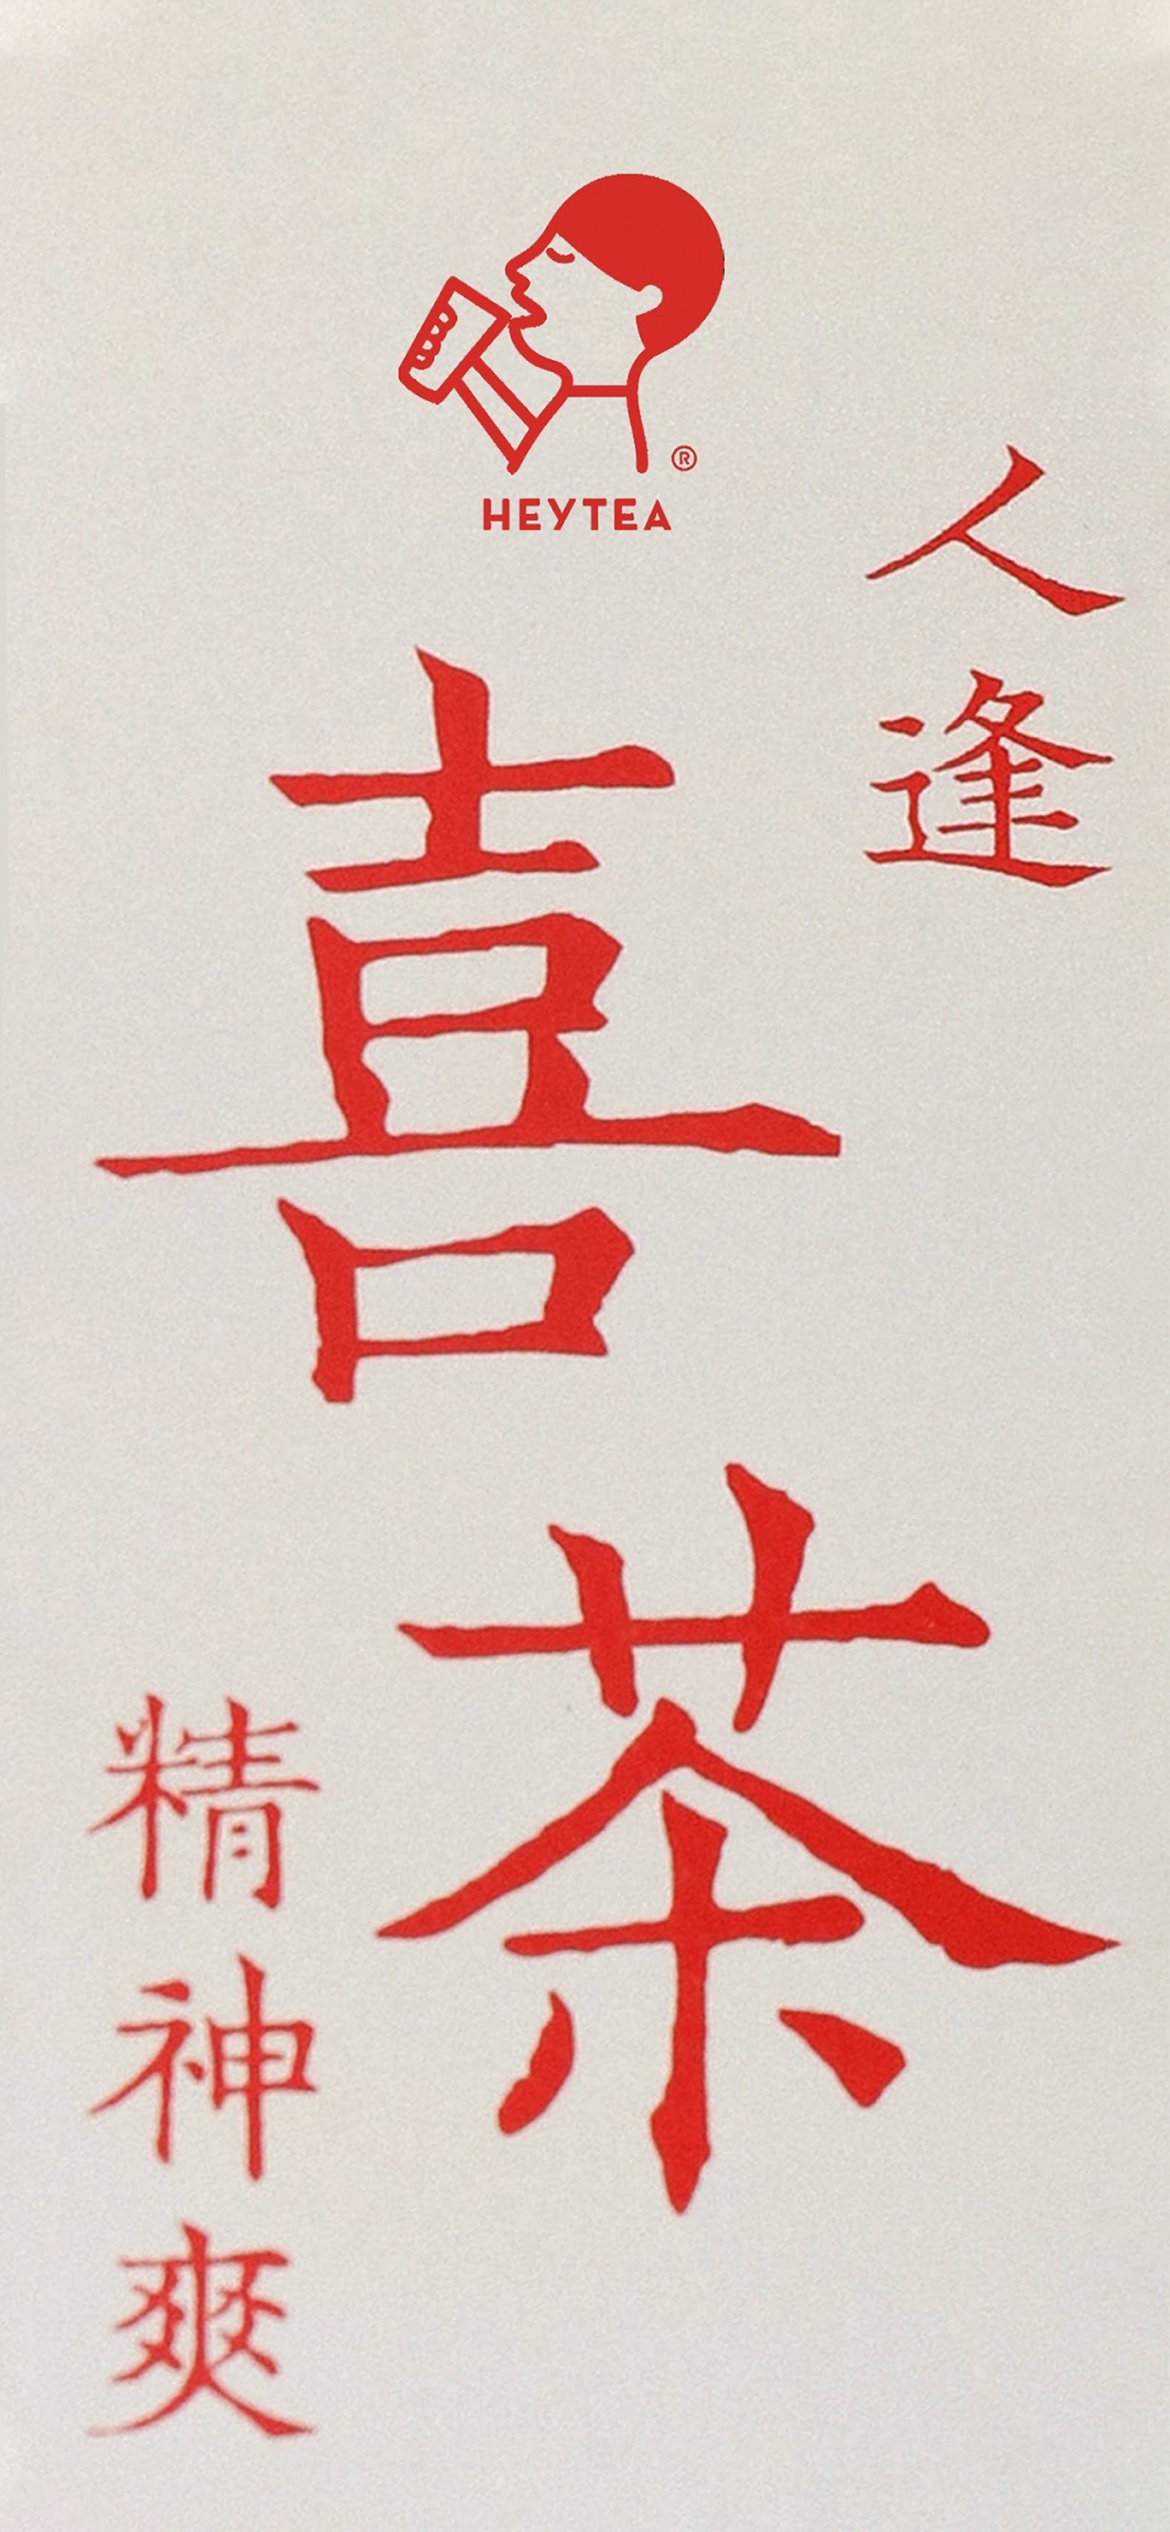 HEYTEA
®
人逢
喜茶
精神爽